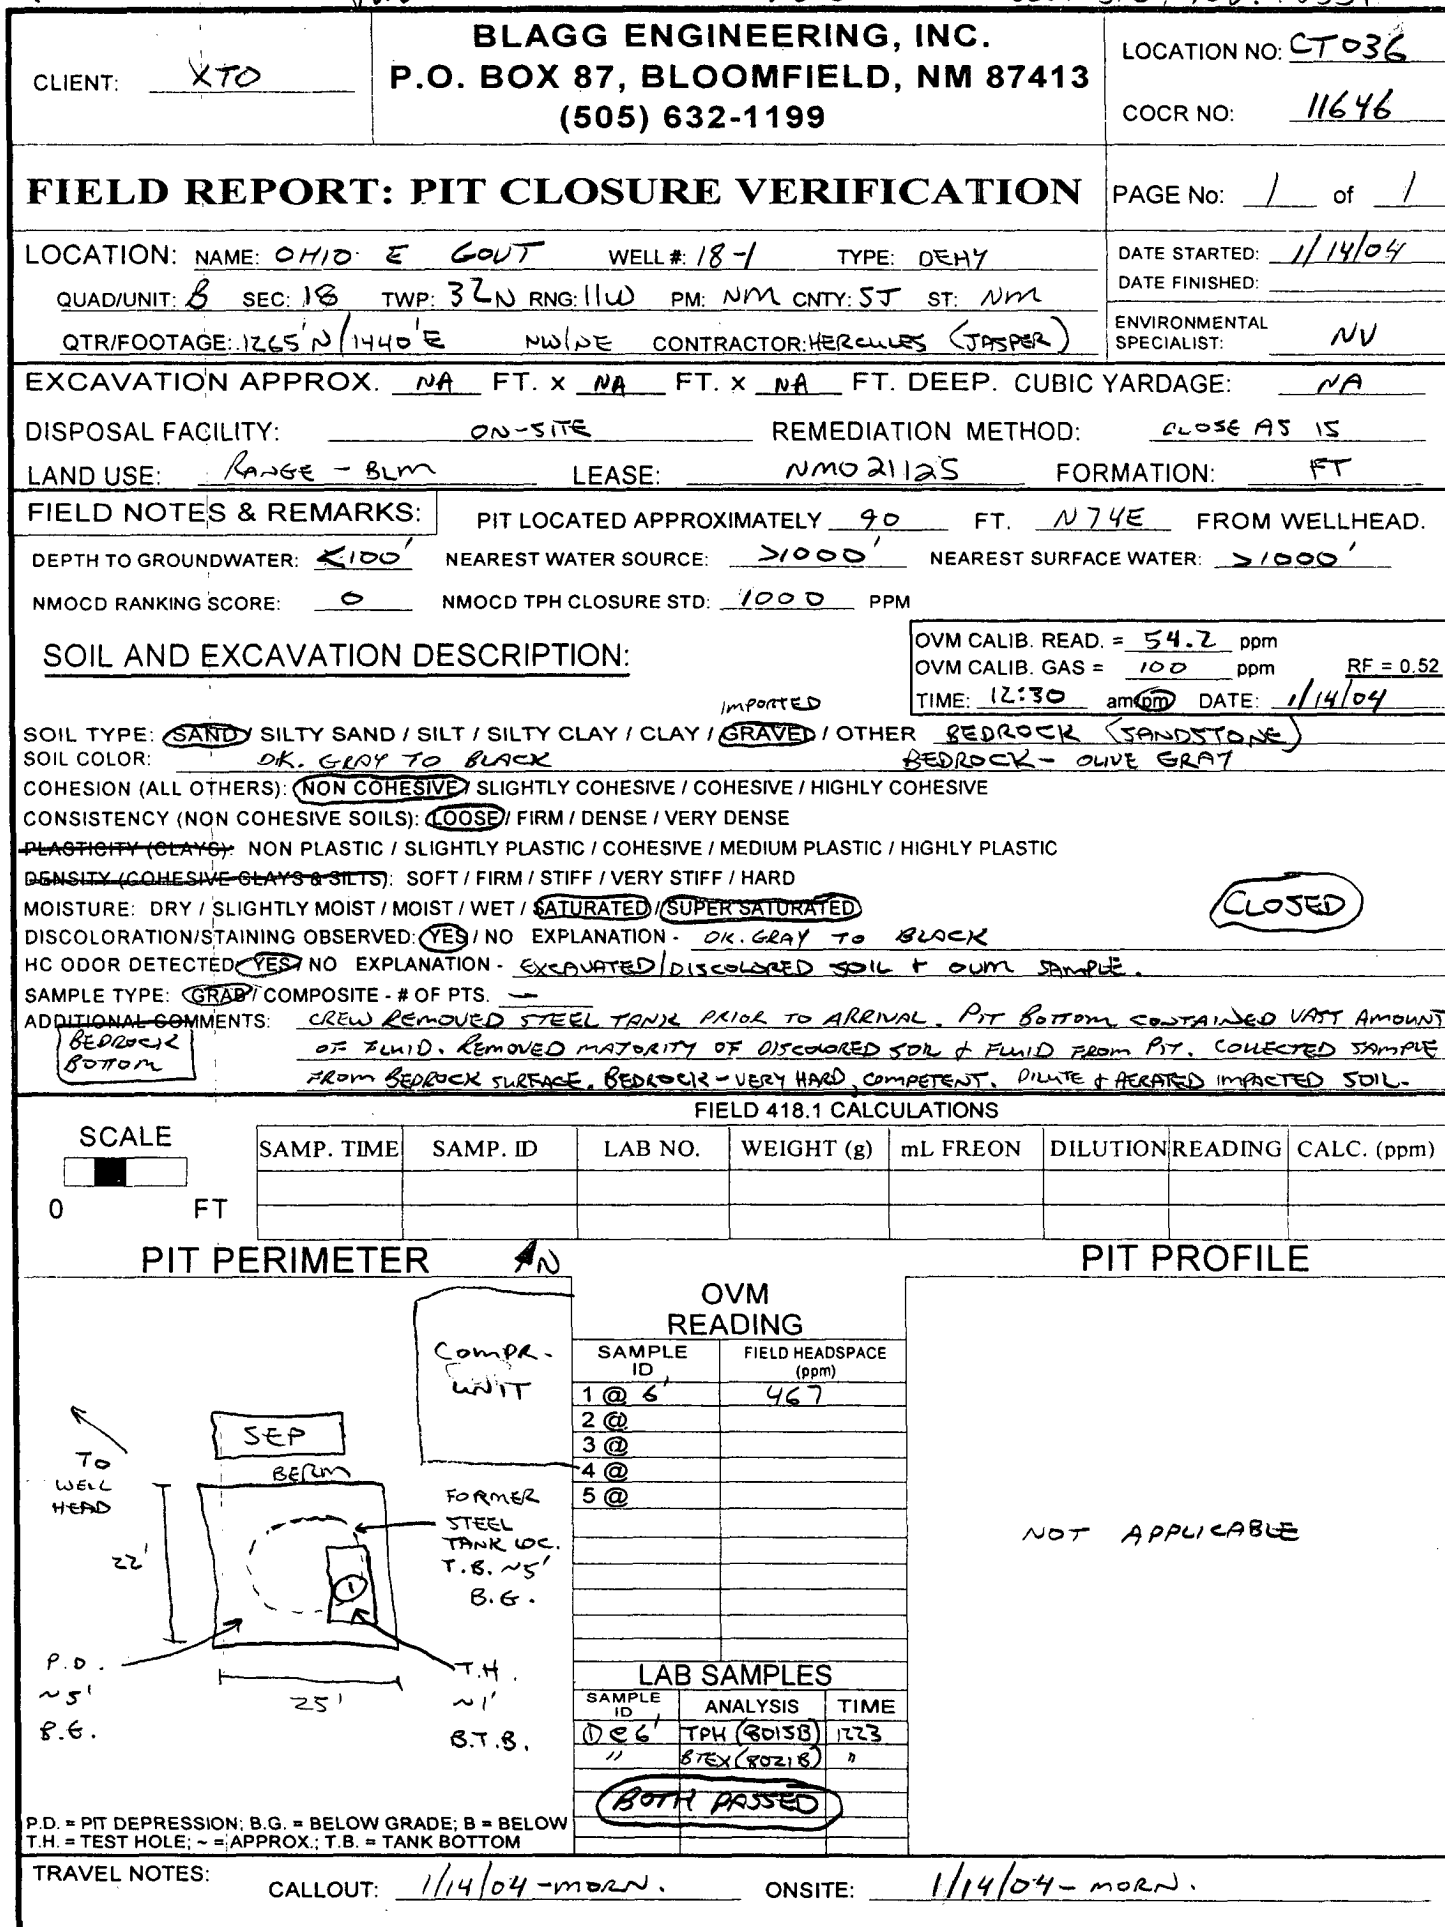 BLAGG ENGINEERING, INC.
P.O. BOX 87, BLOOMFIELD, NM 87413
(505) 632-1199
CLIENT: XTO
LOCATION NO: CT036
COCR NO: 11646
FIELD REPORT: PIT CLOSURE VERIFICATION
PAGE No: 1 of 1
LOCATION: NAME: OHIO E GOVT WELL #: 18-1 TYPE: DEHY
QUAD/UNIT: B SEC: 18 TWP: 32N RNG: 11W PM: NM CNTY: SJ ST: NM
QTR/FOOTAGE: 1265'N/1440'E NW/NE CONTRACTOR: HERCULES (JASPER)
DATE STARTED: 1/14/04
DATE FINISHED:
ENVIRONMENTAL SPECIALIST: NV
EXCAVATION APPROX. NA FT. x NA FT. x NA FT. DEEP. CUBIC YARDAGE: NA
DISPOSAL FACILITY: ON-SITE REMEDIATION METHOD: CLOSE AS IS
LAND USE: RANGE - BLM LEASE: NM021125 FORMATION: FT
FIELD NOTES & REMARKS: PIT LOCATED APPROXIMATELY 90 FT. N74E FROM WELLHEAD.
DEPTH TO GROUNDWATER: <100' NEAREST WATER SOURCE: >1000' NEAREST SURFACE WATER: >1000'
NMOCD RANKING SCORE: 0 NMOCD TPH CLOSURE STD: 1000 PPM
SOIL AND EXCAVATION DESCRIPTION:
OVM CALIB. READ. = 54.2 ppm
OVM CALIB. GAS = 100 ppm RF = 0.52
TIME: 12:30 am/pm DATE: 1/14/04
IMPORTED
SOIL TYPE: SAND / SILTY SAND / SILT / SILTY CLAY / CLAY / GRAVEL / OTHER BEDROCK (SANDSTONE)
SOIL COLOR: DK. GRAY TO BLACK BEDROCK - OLIVE GRAY
COHESION (ALL OTHERS): NON COHESIVE / SLIGHTLY COHESIVE / COHESIVE / HIGHLY COHESIVE
CONSISTENCY (NON COHESIVE SOILS): LOOSE / FIRM / DENSE / VERY DENSE
PLASTICITY (CLAYS): NON PLASTIC / SLIGHTLY PLASTIC / COHESIVE / MEDIUM PLASTIC / HIGHLY PLASTIC
DENSITY (COHESIVE CLAYS & SILTS): SOFT / FIRM / STIFF / VERY STIFF / HARD
MOISTURE: DRY / SLIGHTLY MOIST / MOIST / WET / SATURATED / SUPER SATURATED
CLOSED
DISCOLORATION/STAINING OBSERVED: YES / NO EXPLANATION - DK. GRAY TO BLACK
HC ODOR DETECTED: YES / NO EXPLANATION - EXCAVATED/DISCOLORED SOIL + OVM SAMPLE.
SAMPLE TYPE: GRAB / COMPOSITE - # OF PTS. —
ADDITIONAL COMMENTS: CREW REMOVED STEEL TANK PRIOR TO ARRIVAL. PIT BOTTOM CONTAINED VAST AMOUNT
OF FLUID. REMOVED MAJORITY OF DISCOLORED SOIL & FLUID FROM PIT. COLLECTED SAMPLE
FROM BEDROCK SURFACE. BEDROCK - VERY HARD, COMPETENT. DILUTE & AERATED IMPACTED SOIL.
BEDROCK
BOTTOM
FIELD 418.1 CALCULATIONS
SCALE
0 FT
SAMP. TIME SAMP. ID LAB NO. WEIGHT (g) mL FREON DILUTION READING CALC. (ppm)
PIT PERIMETER N
PIT PROFILE
COMPR.
UNIT
SEP
BERM
TO
WELL
HEAD
22'
25'
FORMER
STEEL
TANK LOC.
T.B. ~5'
B.G.
1
P.D.
~5'
B.G.
T.H.
~1'
B.T.B.
OVM
READING
SAMPLE ID FIELD HEADSPACE (ppm)
1 @ 6' 467
2 @
3 @
4 @
5 @
NOT APPLICABLE
LAB SAMPLES
SAMPLE ID ANALYSIS TIME
① @ 6' TPH (8015B) 1223
" BTEX (8021B) "
BOTH PASSED
P.D. = PIT DEPRESSION; B.G. = BELOW GRADE; B = BELOW
T.H. = TEST HOLE; ~ = APPROX.; T.B. = TANK BOTTOM
TRAVEL NOTES: CALLOUT: 1/14/04 - MORN. ONSITE: 1/14/04 - MORN.